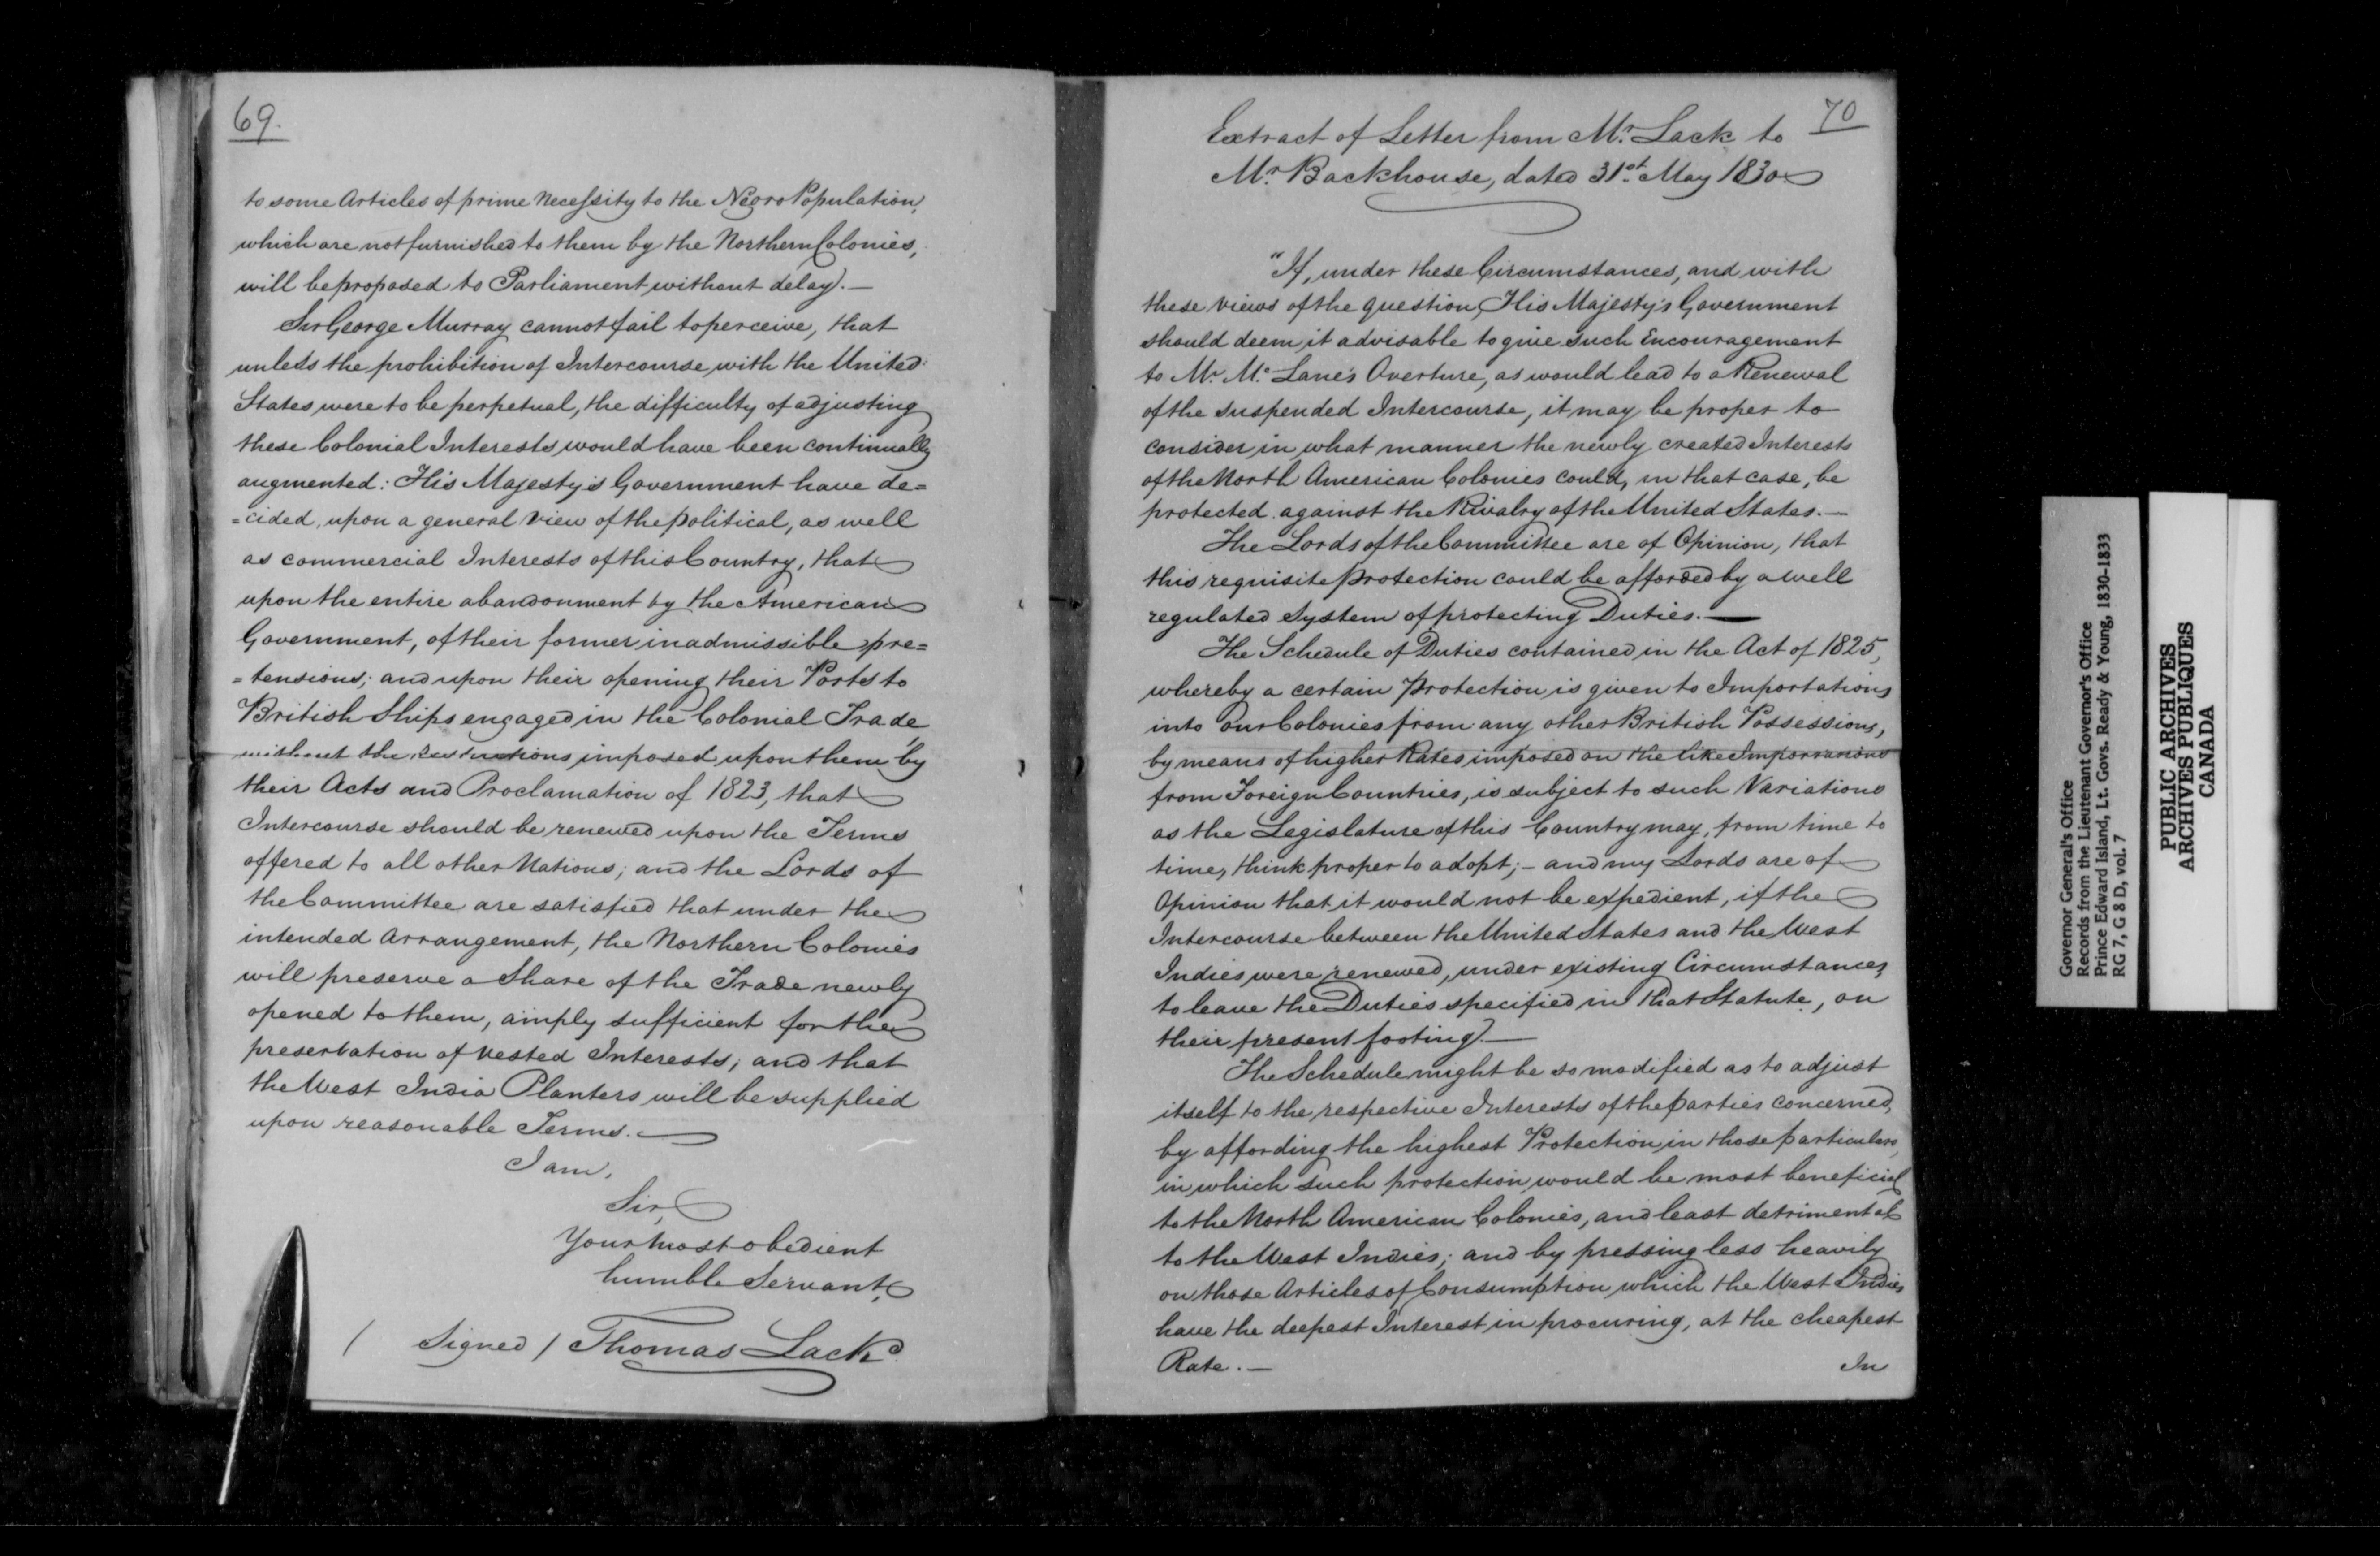 69.
to some Articles of prime Necessity to the Negro Population,
which are not furnished to them by the Northern Colonies,
will be proposed to Parliament without delay.—
Sir George Murray cannot fail to perceive, that
unless the prohibition of Intercourse with the United
States were to be perpetual, the difficulty of adjusting
these Colonial Interests would have been continually
augmented: His Majesty's Government have de=
=cided, upon a general view of the political, as well
as commercial Interests of this Country, that
upon the entire abandonment by the American
Government, of their former inadmissible pre=
=tensions; and upon their opening their Ports to
British Ships engaged in the Colonial Trade,
without the restrictions imposed upon them by
their Acts and Proclamation of 1823, that
Intercourse should be renewed upon the Terms
offered to all other Nations; and the Lords of
the Committee are satisfied that under the
intended Arrangement, the Northern Colonies
will preserve a Share of the Trade newly
opened to them, amply sufficient for the
preservation of vested Interests; and that
the West India Planters will be supplied
upon reasonable Terms.—
I am,
Sir,
Your most obedient
humble Servant,
( Signed ) Thomas Lack
70
Extract of Letter from Mr. Lack to
Mr. Backhouse, dated 31st May 1830
"If, under these Circumstances, and with
these views of the question, His Majesty's Government
should deem it advisable to give such Encouragement
to Mr. Mc Lane's Overture, as would lead to a Renewal
of the suspended Intercourse, it may be proper to
consider in what manner the newly created Interests
of the North American Colonies could, in that case, be
protected against the Rivalry of the United States.—
The Lords of the Committee are of Opinion, that
this requisite protection could be afforded by a well
regulated System of protecting Duties.—
The Schedule of Duties contained in the Act of 1825,
whereby a certain Protection is given to Importations
into our Colonies from any other British Possessions,
by means of higher Rates imposed on the like Importations
from Foreign Countries, is subject to such Variations
as the Legislature of this Country may, from time to
time, think proper to adopt;— and my Lords are of
Opinion that it would not be expedient, if the
Intercourse between the United States and the West
Indies were renewed, under existing Circumstances,
to leave the Duties specified in that Statute, on
their present footing.—
The Schedule might be so modified as to adjust
itself to the respective Interests of the parties concerned,
by affording the highest Protection, in those particulars,
in which such protection would be most beneficial
to the North American Colonies, and least detrimental
to the West Indies; and by pressing less heavily
on those Articles of Consumption which the West Indies
have the deepest Interest in procuring, at the cheapest
Rate.—
In
Governor General's Office
Records from the Lieutenant Governor's Office
Prince Edward Island, Lt. Govs. Ready & Young, 1830-1833
RG 7, G 8 D, vol. 7
PUBLIC ARCHIVES
ARCHIVES PUBLIQUES
CANADA